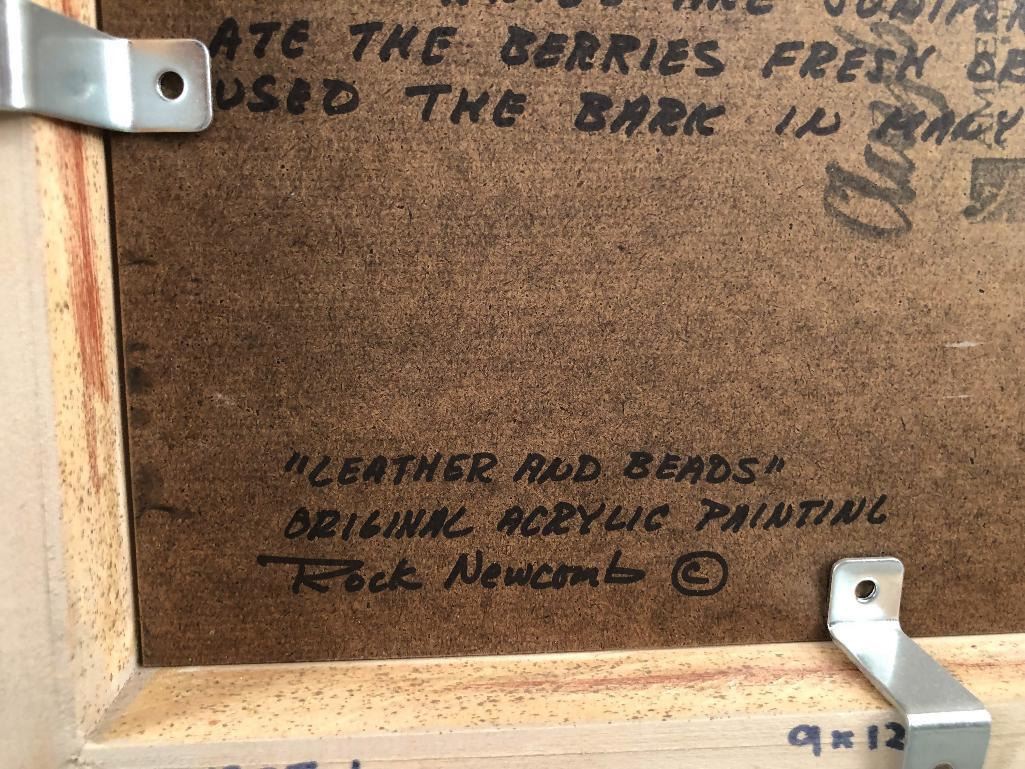 ARE JUNIPER
ATE THE BERRIES FRESH OR
USED THE BARK IN MANY
"LEATHER AND BEADS"
ORIGINAL ACRYLIC PAINTING
Rock Newcomb ©
9x12